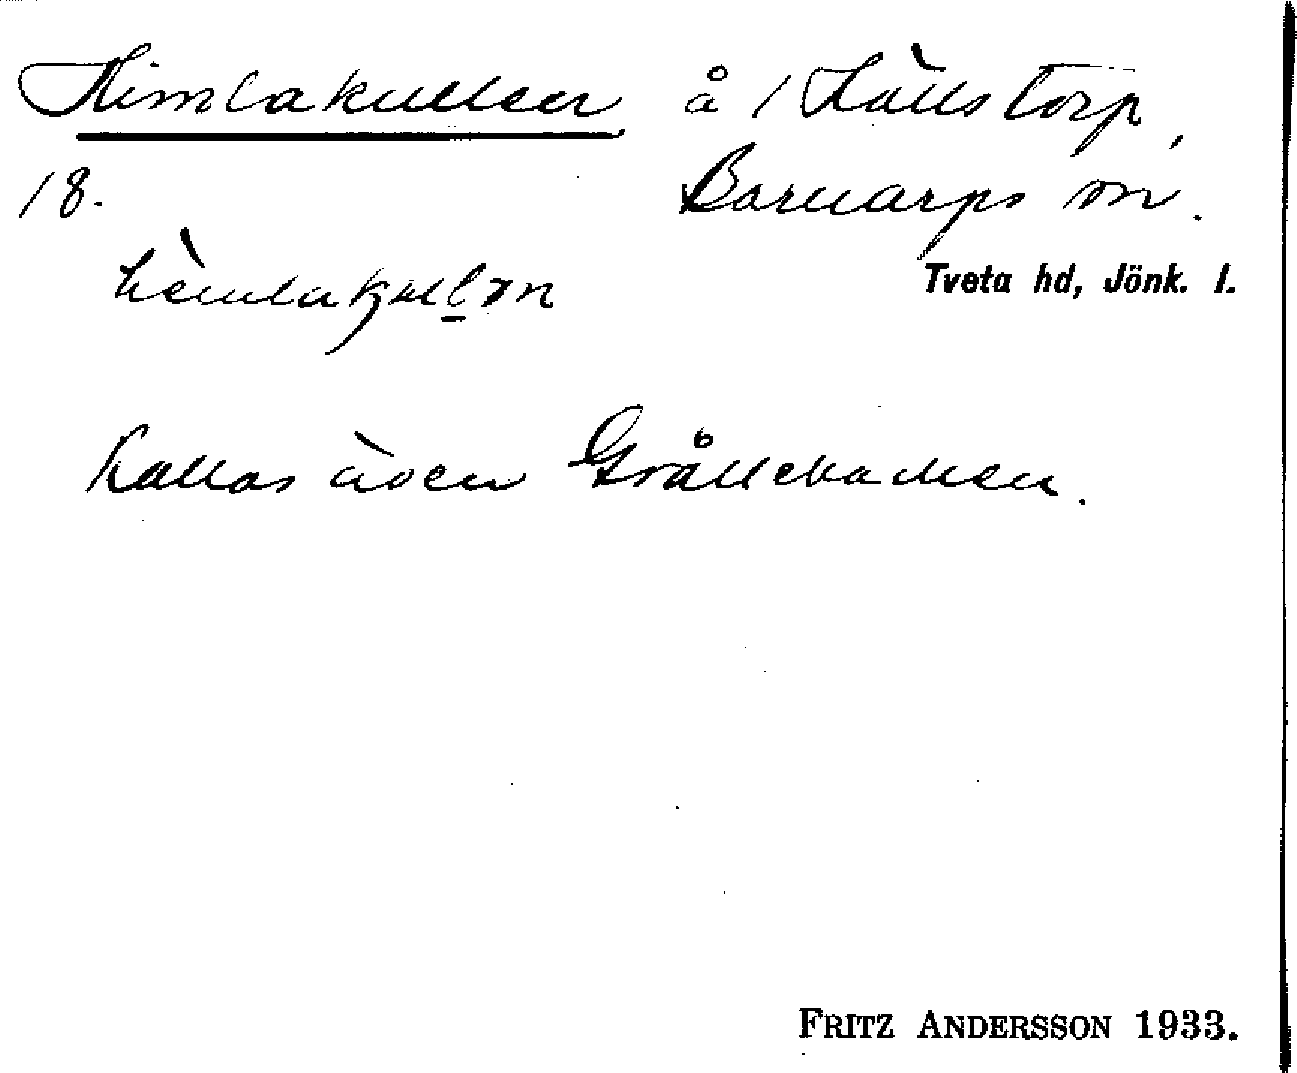 Himlakullen å 1 Källstorp,
18. Barnarps sn.
Tveta hd, Jönk. l.
Kallas även Grållebacken.
FRITZ ANDERSSON 1933.